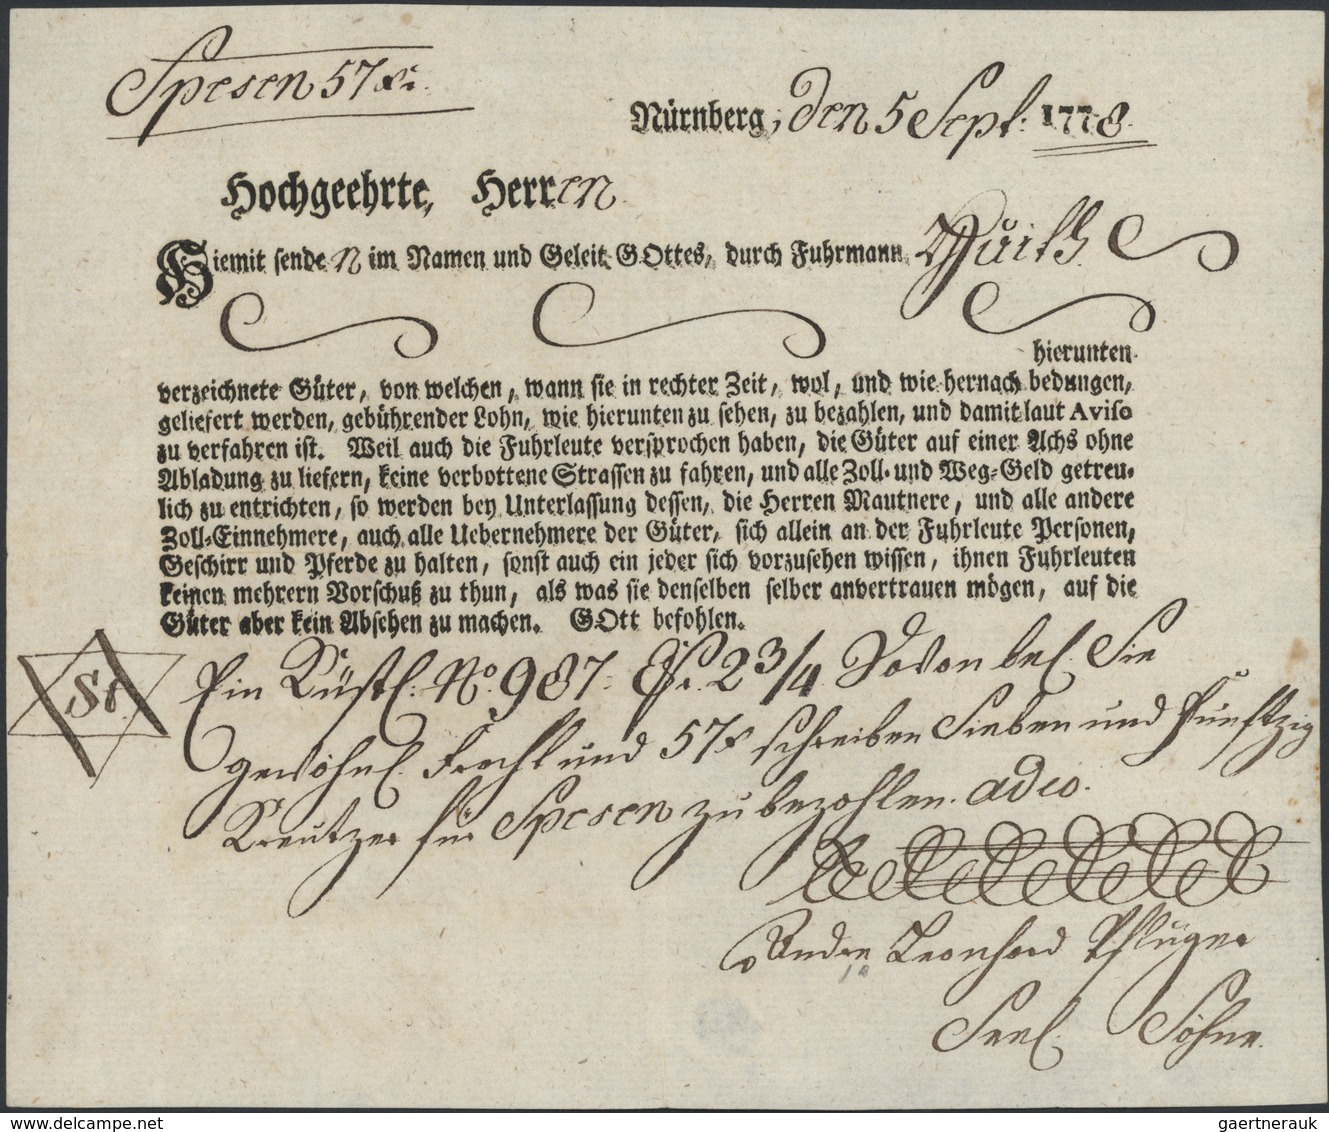 Spesen 57 xr.
Nürnberg, den 5 Sept: 1778.
Hochgeehrte, Herren
Hiemit sende n im Namen und Geleit GOttes, durch Fuhrmann
hierunten
verzeichnete Güter, von welchen, wann sie in rechter Zeit, wol, und wie hernach bedungen,
geliefert werden, gebührender Lohn, wie hierunten zu sehen, zu bezahlen, und damit laut Aviso
zu verfahren ist. Weil auch die Fuhrleute versprochen haben, die Güter auf einer Achs ohne
Abladung zu liefern, keine verbottene Strassen zu fahren, und alle Zoll- und Weg-Geld getreu-
lich zu entrichten, so werden bey Unterlassung dessen, die Herren Mautnere, und alle andere
Zoll-Einnehmere, auch alle Uebernehmere der Güter, sich allein an der Fuhrleute Personen,
Geschirr und Pferde zu halten, sonst auch ein jeder sich vorzusehen wissen, ihnen Fuhrleuten
keinen mehrern Vorschuß zu thun, als was sie denselben selber anvertrauen mögen, auf die
Güter aber kein Absehen zu machen. GOtt befohlen.
St
Ein Küstl. No. 987. 2 3/4 Davon bel. Sie
gewöhnl. Fracht und 57 x schreiben Sieben und Funftzig
Kreutzer für Spesen zu bezahlen. adio.
Andre Leonhard Pflüger
Seel. Söhne.
gaertnerauk @ delcampe.net